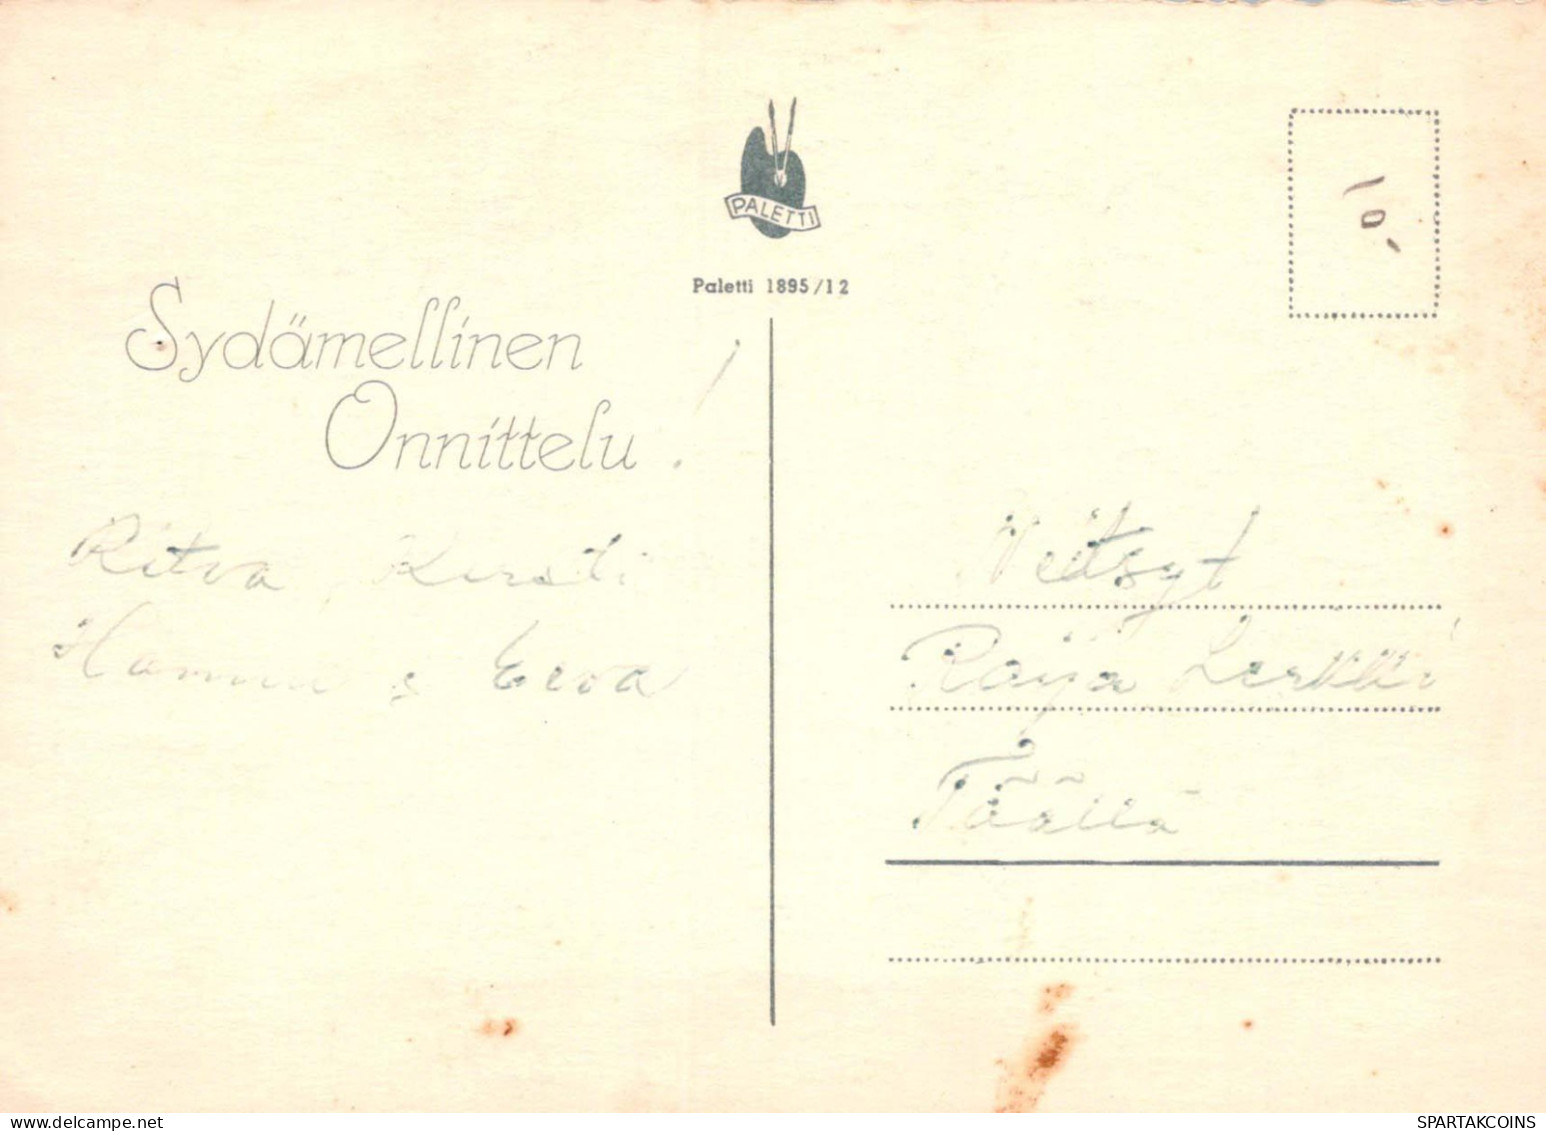 PALETTI
Paletti 1895/12
10,-
Sydämellinen
Onnittelu !
Ritva Kirsti
Hannu & Eeva
Neitsyt
Raija
Täällä
delcampe.net
SPARTAKCOINS